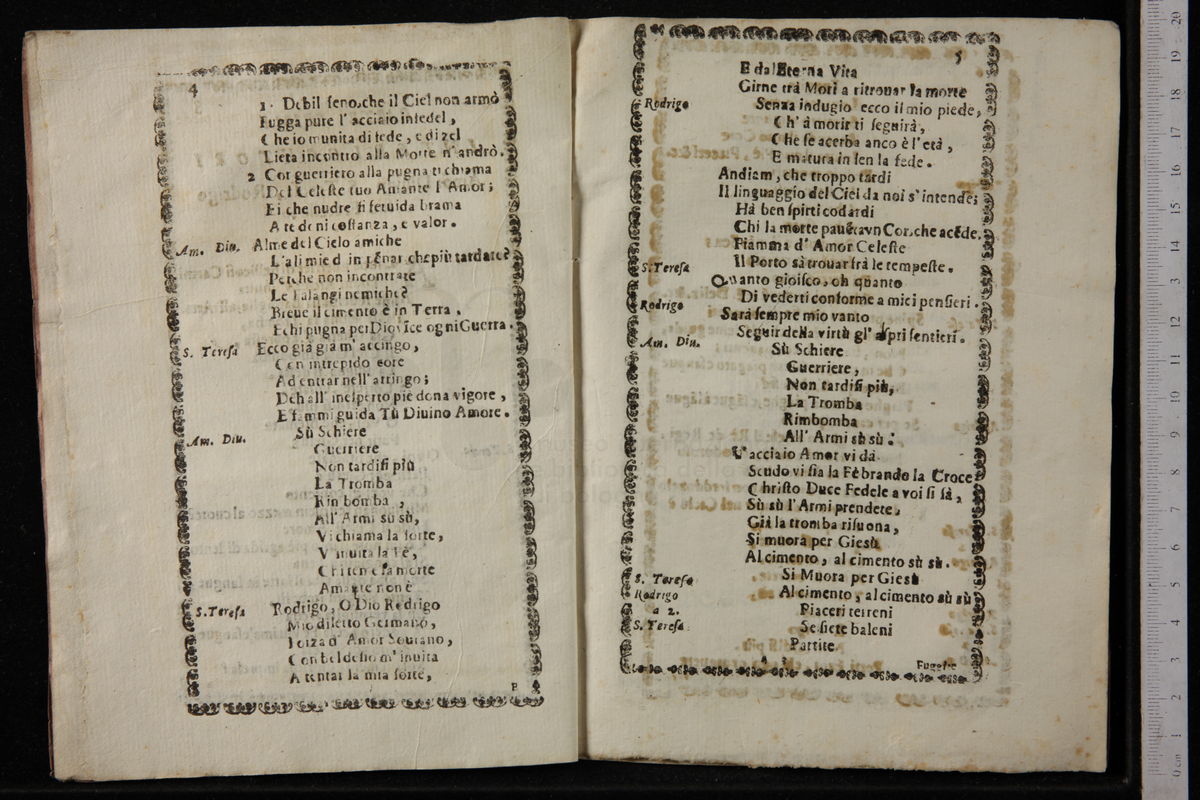 4
1. Debil seno, che il Ciel non armò
Fugga pure l' acciaio infedel,
Che io munita di fede, e di zel
Lieta incontro alla Morte n' andrò.
2 Cor guerriero alla pugna ti chiama
Del Celeste tuo Amante l' Amor;
Ei che nudre sì feruida brama
A te doni costanza, e valor.
Am. Diu. Alme del Cielo amiche
L' ali mie d' in penar che più tardate?
Perche non incontrate
Le Falangi nemiche?
Breue il cimento è in Terra.
E chi pugna per Dio vīce ogni Guerra.
S. Teresa Ecco già già m' accingo,
Con intrepido core
Ad entrar nell' arringo;
Deh all' inesperto piè dona vigore,
E fammi guida Tù Diuino Amore.
Am. Diu. Sù Schiere
Guerriere
Non tardisi più
La Tromba
Rimbomba,
All' Armi sù sù,
Vi chiama la sorte,
V' inuita la Fè,
Chi teme la morte
Amante non è
S. Teresa Rodrigo, O Dio Rodrigo
Mio diletto Germano,
Forza d' Amor Sourano,
Con bel desio m' inuita
A tentar la mia sorte,
E
5
E dal Eterna Vita
Girne trà Mori a ritrouar la morte
Rodrigo Senza indugio ecco il mio piede,
Ch' à morir ti seguirà,
Che se acerba anco è l' età,
E matura in sen la fede.
Andiam, che troppo tardi
Il linguaggio del Ciel da noi s' intende;
Hà ben spirti codardi
Chi la morte pauēta vn Cor, che acēde.
Fiamma d' Amor Celeste
S. Teresa Il Porto sà trouar frà le tempeste.
Quanto gioisco, oh quanto
Rodrigo Di vederti conforme a miei pensieri.
Sarà sempre mio vanto
Seguir della virtù gl' aspri sentieri.
Am. Diu. Sù Schiere
Guerriere,
Non tardisi più,
La Tromba
Rimbomba
All' Armi sù sù.
L' acciaio Amor vi dà
Scudo vi sia la Fè brando la Croce
Christo Duce Fedele a voi si fà,
Sù sù l' Armi prendete,
Già la tromba risuona,
Si muora per Giesù
Al cimento, al cimento sù sù.
S. Teresa Si Muora per Giesù
Rodrigo Al cimento, al cimento sù sù
a 2. Piaceri terreni
S. Teresa Se siete baleni
Partite
Fugga